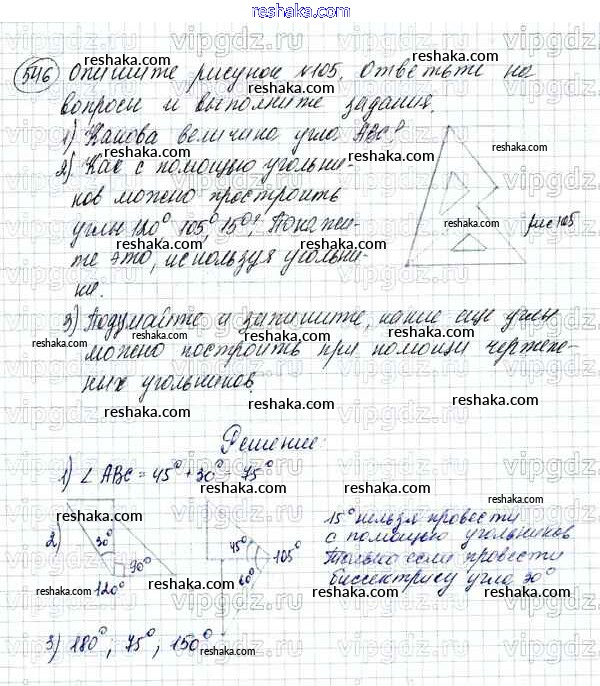 reshaka.com
546 Опишите рисунок №105. Ответьте на
вопросы и выполните задания.
1) Какова величина угла ABC?
2) Как с помощью угольни-
ков можно простроить
углы 120°, 105°, 15°? Покажи-
те это, используя угольни-
ки.
рис 105
3) Подумайте и запишите, какие еще углы
можно построить при помощи чертеж-
ных угольников.
Решение:
1) ∠ ABC = 45° + 30° = 75°
2)
30°
90°
120°
45°
60°
105°
15° нельзя провести
с помощью угольников
только если провести
биссектрису угла 30°
3) 180°; 75°, 150°